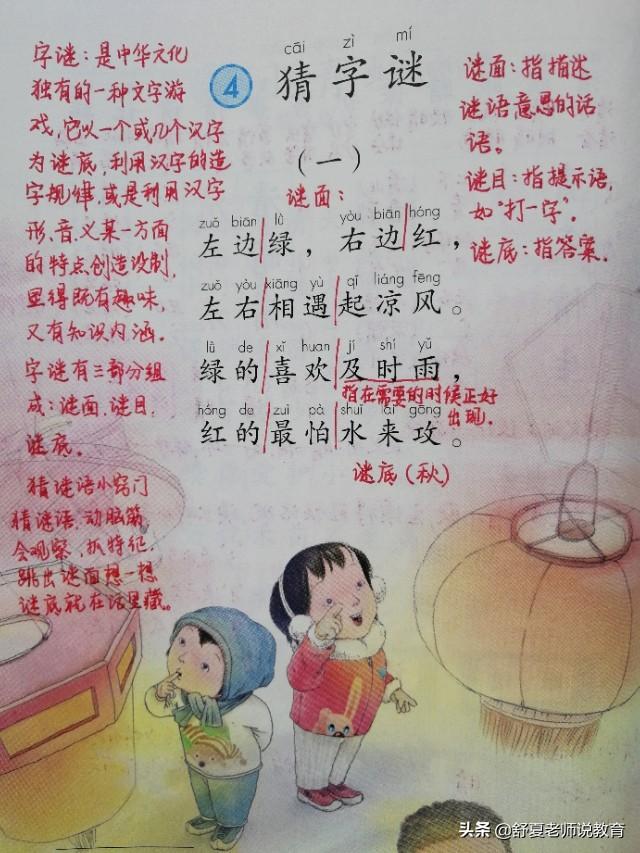 cāi zì mí
4 猜字谜
(一)
谜面:
zuǒ biān lǜ yòu biān hóng
左边绿，右边红，
zuǒ yòu xiāng yù qǐ liáng fēng
左右相遇起凉风。
lǜ de xǐ huan jí shí yǔ
绿的喜欢及时雨，
指在需要的时候正好
出现.
hóng de zuì pà shuǐ lái gōng
红的最怕水来攻。
谜底(秋)
字谜:是中华文化
独有的一种文字游
戏,它以一个或几个汉字
为谜底,利用汉字的造
字规律,或是利用汉字
形、音、义某一方面
的特点创造设制,
显得既有趣味,
又有知识内涵.
字谜有三部分组
成:谜面.谜目.
谜底.
猜谜语小窍门
猜谜语.动脑筋
会观察,抓特征.
跳出谜面想一想
谜底就在话里藏。
谜面:指描述
谜语意思的话
语。
谜目:指提示语,
如"打一字".
谜底:指答案.
头条 @舒夏老师说教育